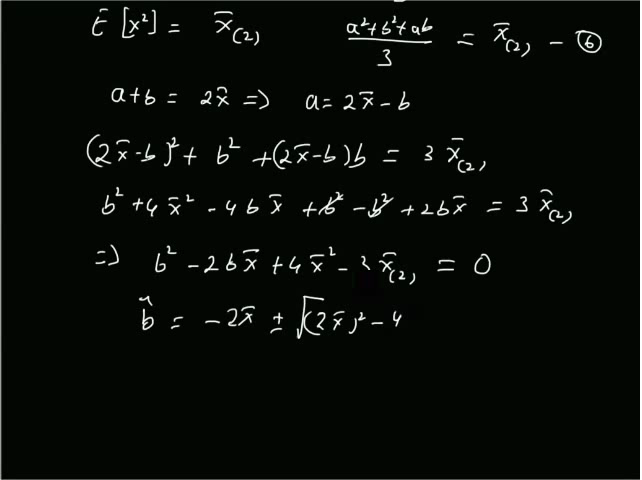 E [x²] = x̄₍₂₎    (a²+b²+ab)/3 = x̄₍₂₎ – ⑥
a+b = 2x̄ => a = 2x̄ – b
(2x̄–b)² + b² + (2x̄–b)b = 3 x̄₍₂₎
b² + 4x̄² – 4bx̄ + b² – b² + 2bx̄ = 3 x̄₍₂₎
=> b² – 2bx̄ + 4x̄² – 3x̄₍₂₎ = 0
b̂ = – 2x̄ ± √(2x̄)² – 4